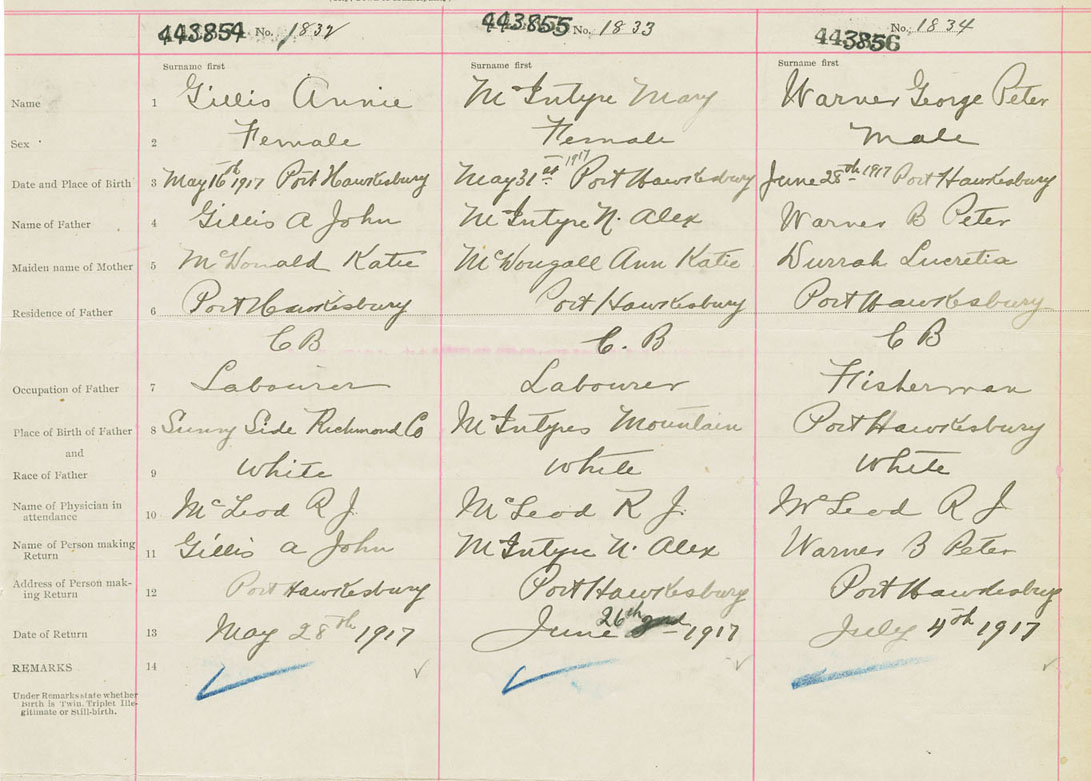 443854 No. 1832 443855 No. 1833 443856 No. 1834
Surname first Surname first Surname first
Name 1 Gillis Annie McIntyre Mary Warner George Peter
Sex 2 Female Female Male
Date and Place of Birth 3 May 16th 1917 Port Hawkesbury May 31st 1917 Port Hawkesbury June 28th 1917 Port Hawkesbury
Name of Father 4 Gillis A John McIntyre N. Alex Warner B Peter
Maiden name of Mother 5 McDonald Katie McDougall Ann Katie Durrah Lucretia
Residence of Father 6 Port Hawkesbury Port Hawkesbury Port Hawkesbury
C B C. B C B
Occupation of Father 7 Labourer Labourer Fisherman
Place of Birth of Father 8 Sunny Side Richmond Co McIntyres Mountain Port Hawkesbury
and
Race of Father 9 White White White
Name of Physician in
attendance 10 McLeod R J. McLeod R J. McLeod R J
Name of Person making
Return 11 Gillis A John McIntyre N. Alex Warner B Peter
Address of Person mak-
ing Return 12 Port Hawkesbury Port Hawkesbury Port Hawkesbury
Date of Return 13 May 28th 1917 June 26th 1917 July 4th 1917
REMARKS 14
Under Remarks state whether
birth is Twin, Triplet Ille-
gitimate or Still-birth.